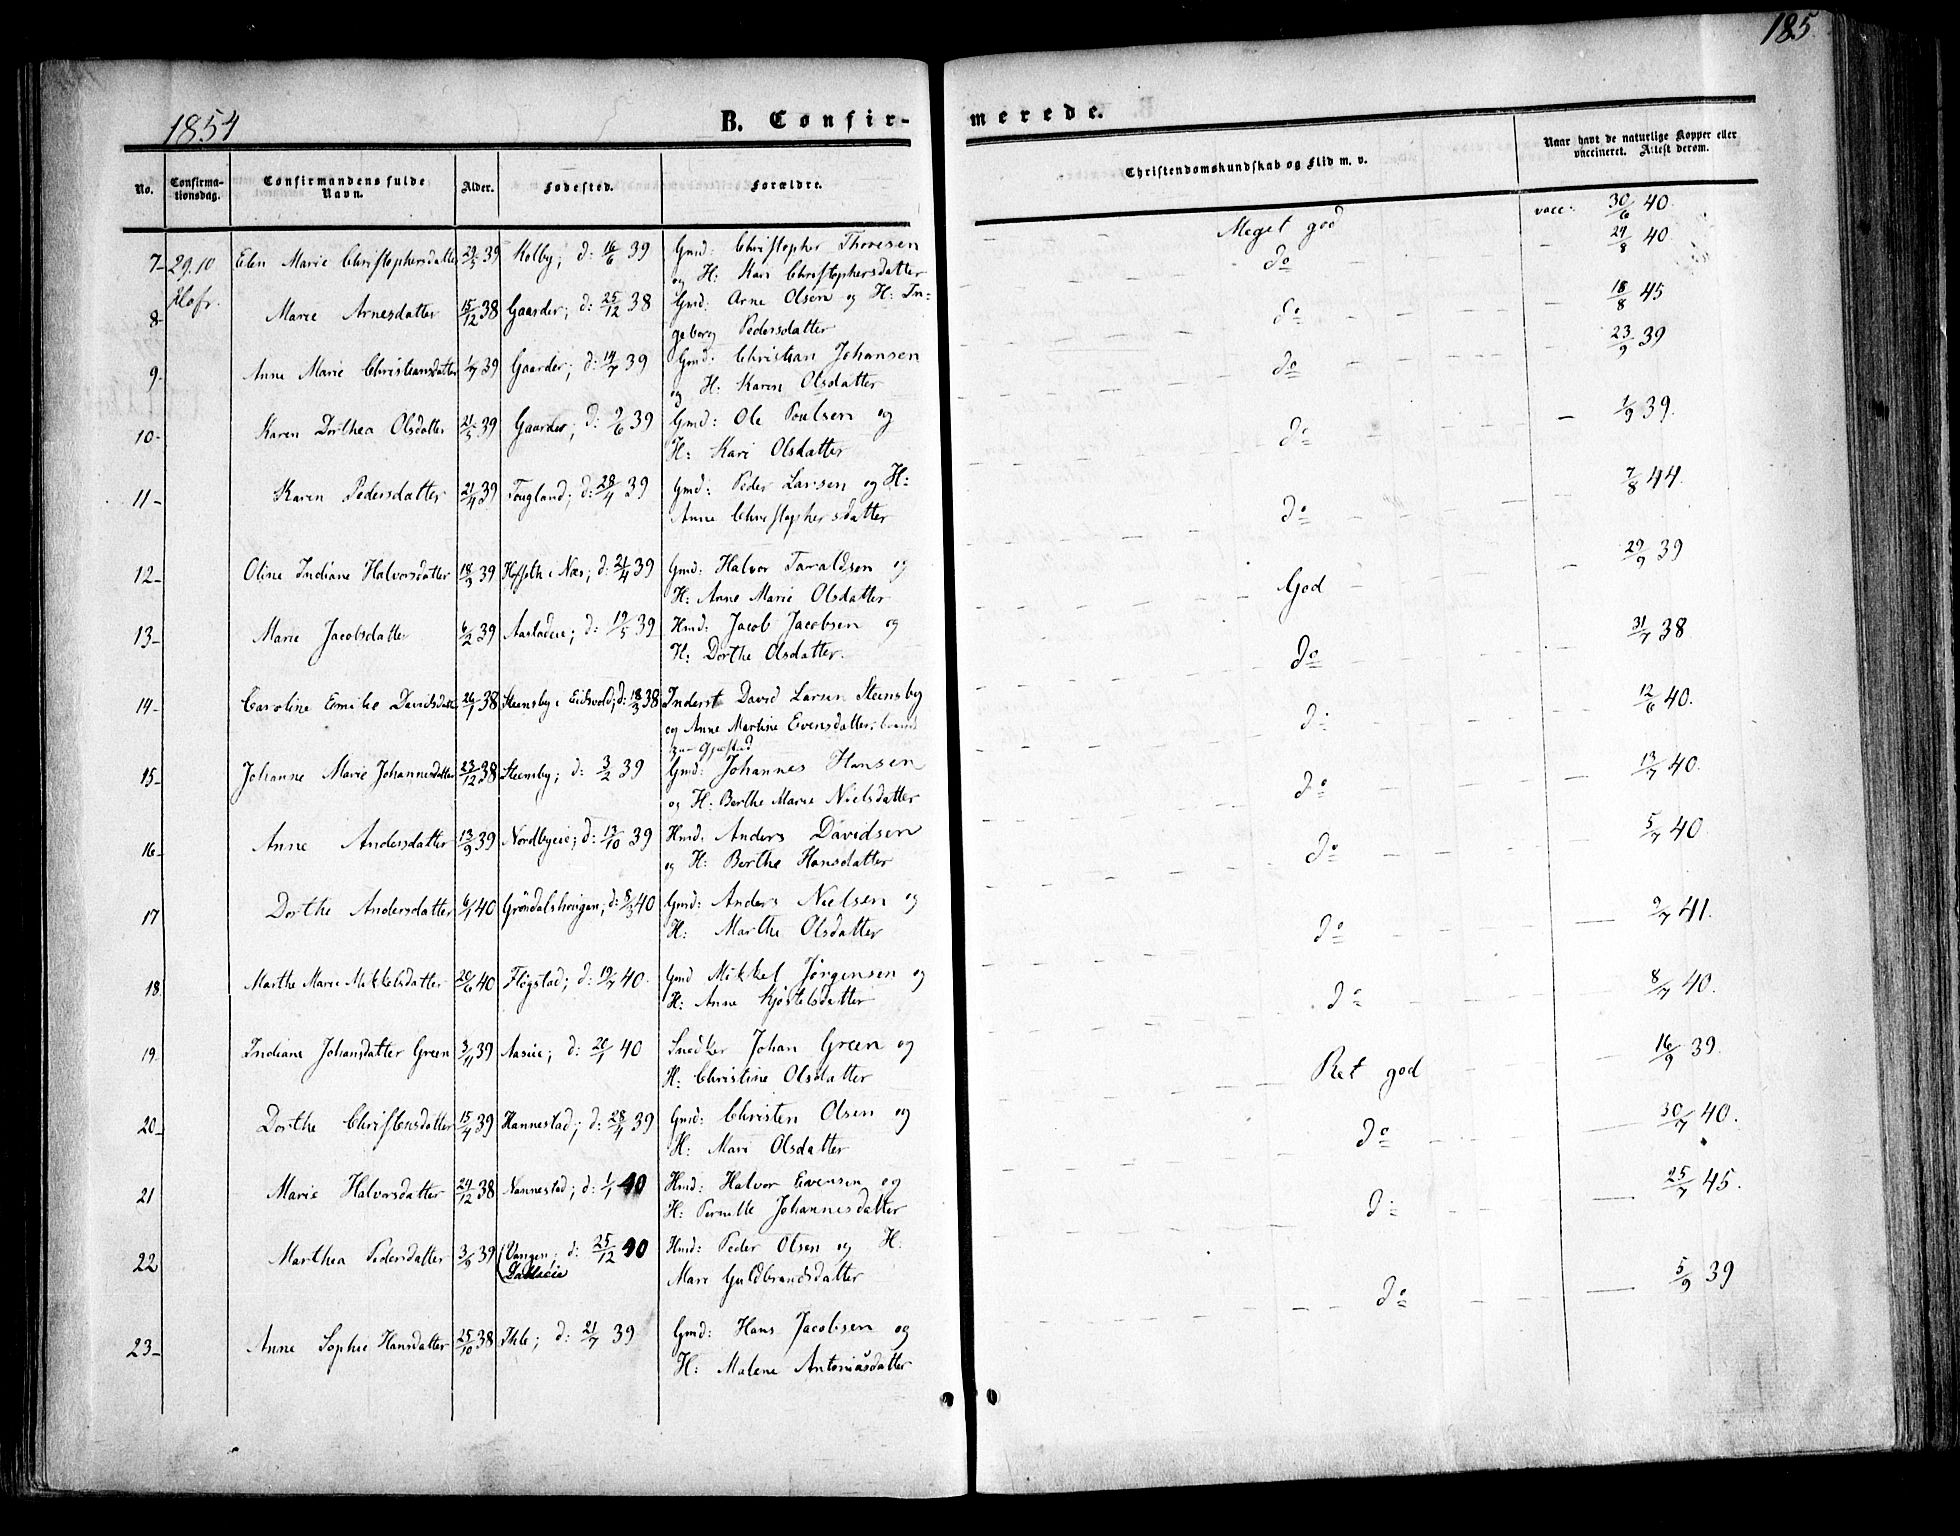 185
1854
B. Confir-
merede.
No.
Confirma-
tionsdag.
Confirmandens fulde
Navn.
Alder.
Fødested.
Forældre.
Christendomskundskab og Flid m. v.
Naar havt de naturlige Kopper eller
vaccineret. Attest derom.
7- 29.10 Elen Marie Christophersdatter 29/5 39 Kolby; d: 16/6 39 Gmd: Christopher Thoresen Meget god vacc: 30/6 40.
og H: Kari Christophersdatter
8- Marie Arnesdatter 15/12 38 Gaarder; d: 25/12 38 Gmd: Arne Olsen og H: In= do 29/8 40
geborg Pedersdatter
9. Anne Marie Christiansdatter 1/7 39 Gaarder; d: 14/7 39 Gmd. Christian Johansen do 18/8 45
og H: Karen Olsdatter
10- Karen Dorthea Olsdatter 21/5 39 Gaarder; d: 9/6 39 Gmd: Ole Poulsen og do 23/9 39
H: Kari Olsdatter
11- Karen Pedersdatter 21/4 39 Tougland; d: 28/4 39 Gmd: Peder Larsen og H: do 1/9 39.
Anne Christophersdatter
12- Oline Indiane Halvorsdatter 18/3 39 Hofseth i Næs; d: 21/4 39 Gmd: Halvor Taraldsen og do 7/8 44.
H: Anne Marie Olsdatter
13- Marie Jacobsdatter 6/2 39 Aastadeie; d: 19/5 39 Hmd: Jacob Jacobsen og God 29/9 39
H: Dorthe Olsdatter.
14- Caroline Emilie Davidsdatter 26/1 38 Steensby i Eidsvold; d: 18/3 38 Inderst David Larsen Steensby do 31/7 38
og Anne Martine Evensdatter,
Gjæstad
15- Johanne Marie Johannesdatter 23/12 38 Steensby; d: 3/2 39 Gmd: Johannes Hansen do 12/6 40.
og H: Berthe Marie Nielsdatter
16- Anne Andersdatter 13/9 39 Nordbyeie; d: 13/10 39 Hmd. Anders Davidsen do 13/7 40.
og H: Berthe Hansdatter
17 Dorthe Andersdatter 6/1 40 Grøndalshougen; d: 8/3 40 Gmd: Anders Nielsen og do 5/7 40.
H: Marthe Olsdatter
18 Marthe Marie Mikkelsdatter 20/6 40 Fløgstad; d: 19/7 40. Gmd Mikkel Jørgensen og do 9/7 41.
H: Anne Kjøstelsdatter
19. Indiane Johansdatter Green 3/11 39 Aaseie; d: 20/1 40 Snedker Johan Green og do 8/7 40.
H: Christine Olsdatter
20- Dorthe Christensdatter 15/4 39 Hannestad; d: 28/4 39 Gmd: Christen Olsen og Ret god 16/9 39.
H: Mari Olsdatter
21 Marie Halvorsdatter 24/12 38 Nannestad; d: 1/1 40 Hmd: Halvor Evensen og do 30/7 40.
H: Pernelle Johannesdatter
22 Marthea Pedersdatter 3/9 39 Vangen; d: 25/12 40 Hmd: Peder Olsen og H: do 25/7 45.
Mari Guldbrandsdatter
23- Anne Sophie Hansdatter 25/10 38 Ihle; d: 21/7 39 Gmd: Hans Jacobsen og do 5/9 39
H: Malene Antoniasdatter